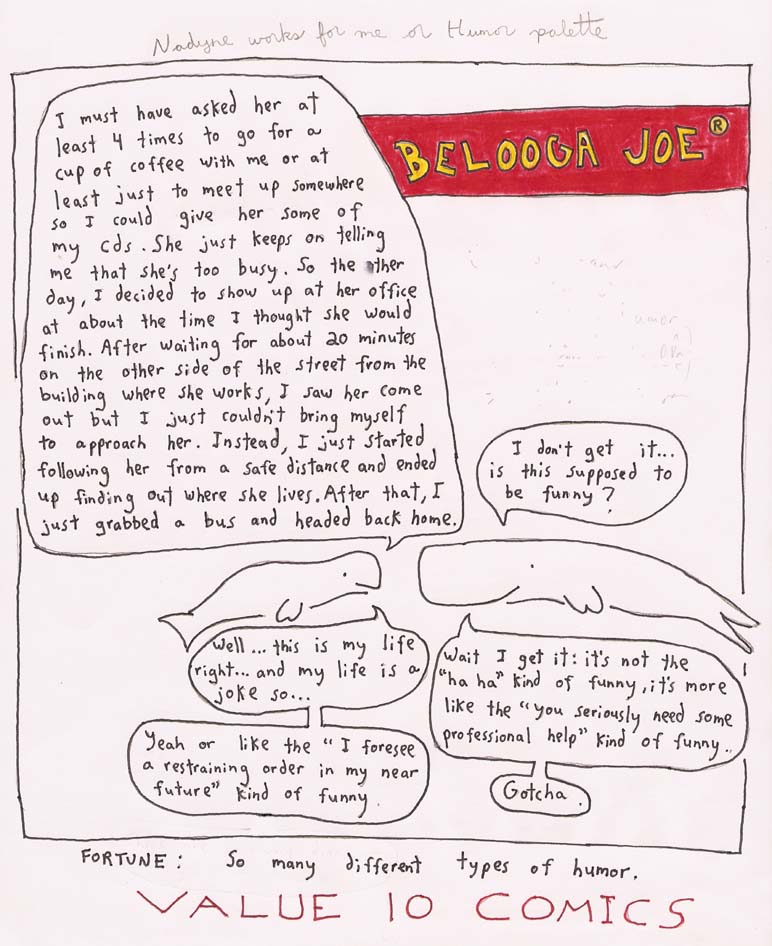 Nadyne works for me or Humor palette
BELOOGA JOE®
I must have asked her at
least 4 times to go for a
cup of coffee with me or at
least just to meet up somewhere
so I could give her some of
my cds. She just keeps on telling
me that she's too busy. So the other
day, I decided to show up at her office
at about the time I thought she would
finish. After waiting for about 20 minutes
on the other side of the street from the
building where she works, I saw her come
out but I just couldn't bring myself
to approach her. Instead, I just started
following her from a safe distance and ended
up finding out where she lives. After that, I
just grabbed a bus and headed back home.
I don't get it...
is this supposed to
be funny?
Well... this is my life
right... and my life is a
joke so...
Wait I get it: it's not the
"ha ha" kind of funny, it's more
like the "you seriously need some
professional help" kind of funny..
Yeah or like the "I foresee
a restraining order in my near
future" kind of funny.
Gotcha.
FORTUNE: So many different types of humor.
VALUE 10 COMICS